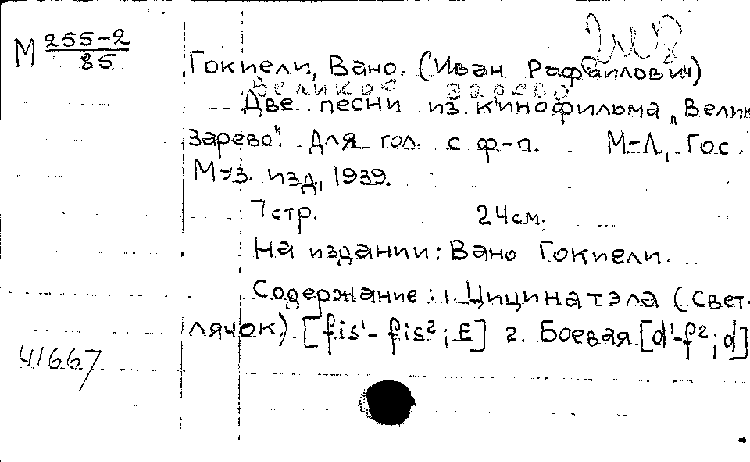 М 255-2
85
Гокиели, Вано. (Иван Рафаилович)
Великое зарево
Две песни из кинофильма „Велик
зарево". Для гол. с ф-п. М-Л, Гос.
Муз. изд, 1939.
7 стр. 24 см.
На издании: Вано Гокиели.
Содержание: 1. Цицинатэла (Свет-
лячок) [fis¹- fis²; E] 2. Боевая [d¹-f²; d]
41667